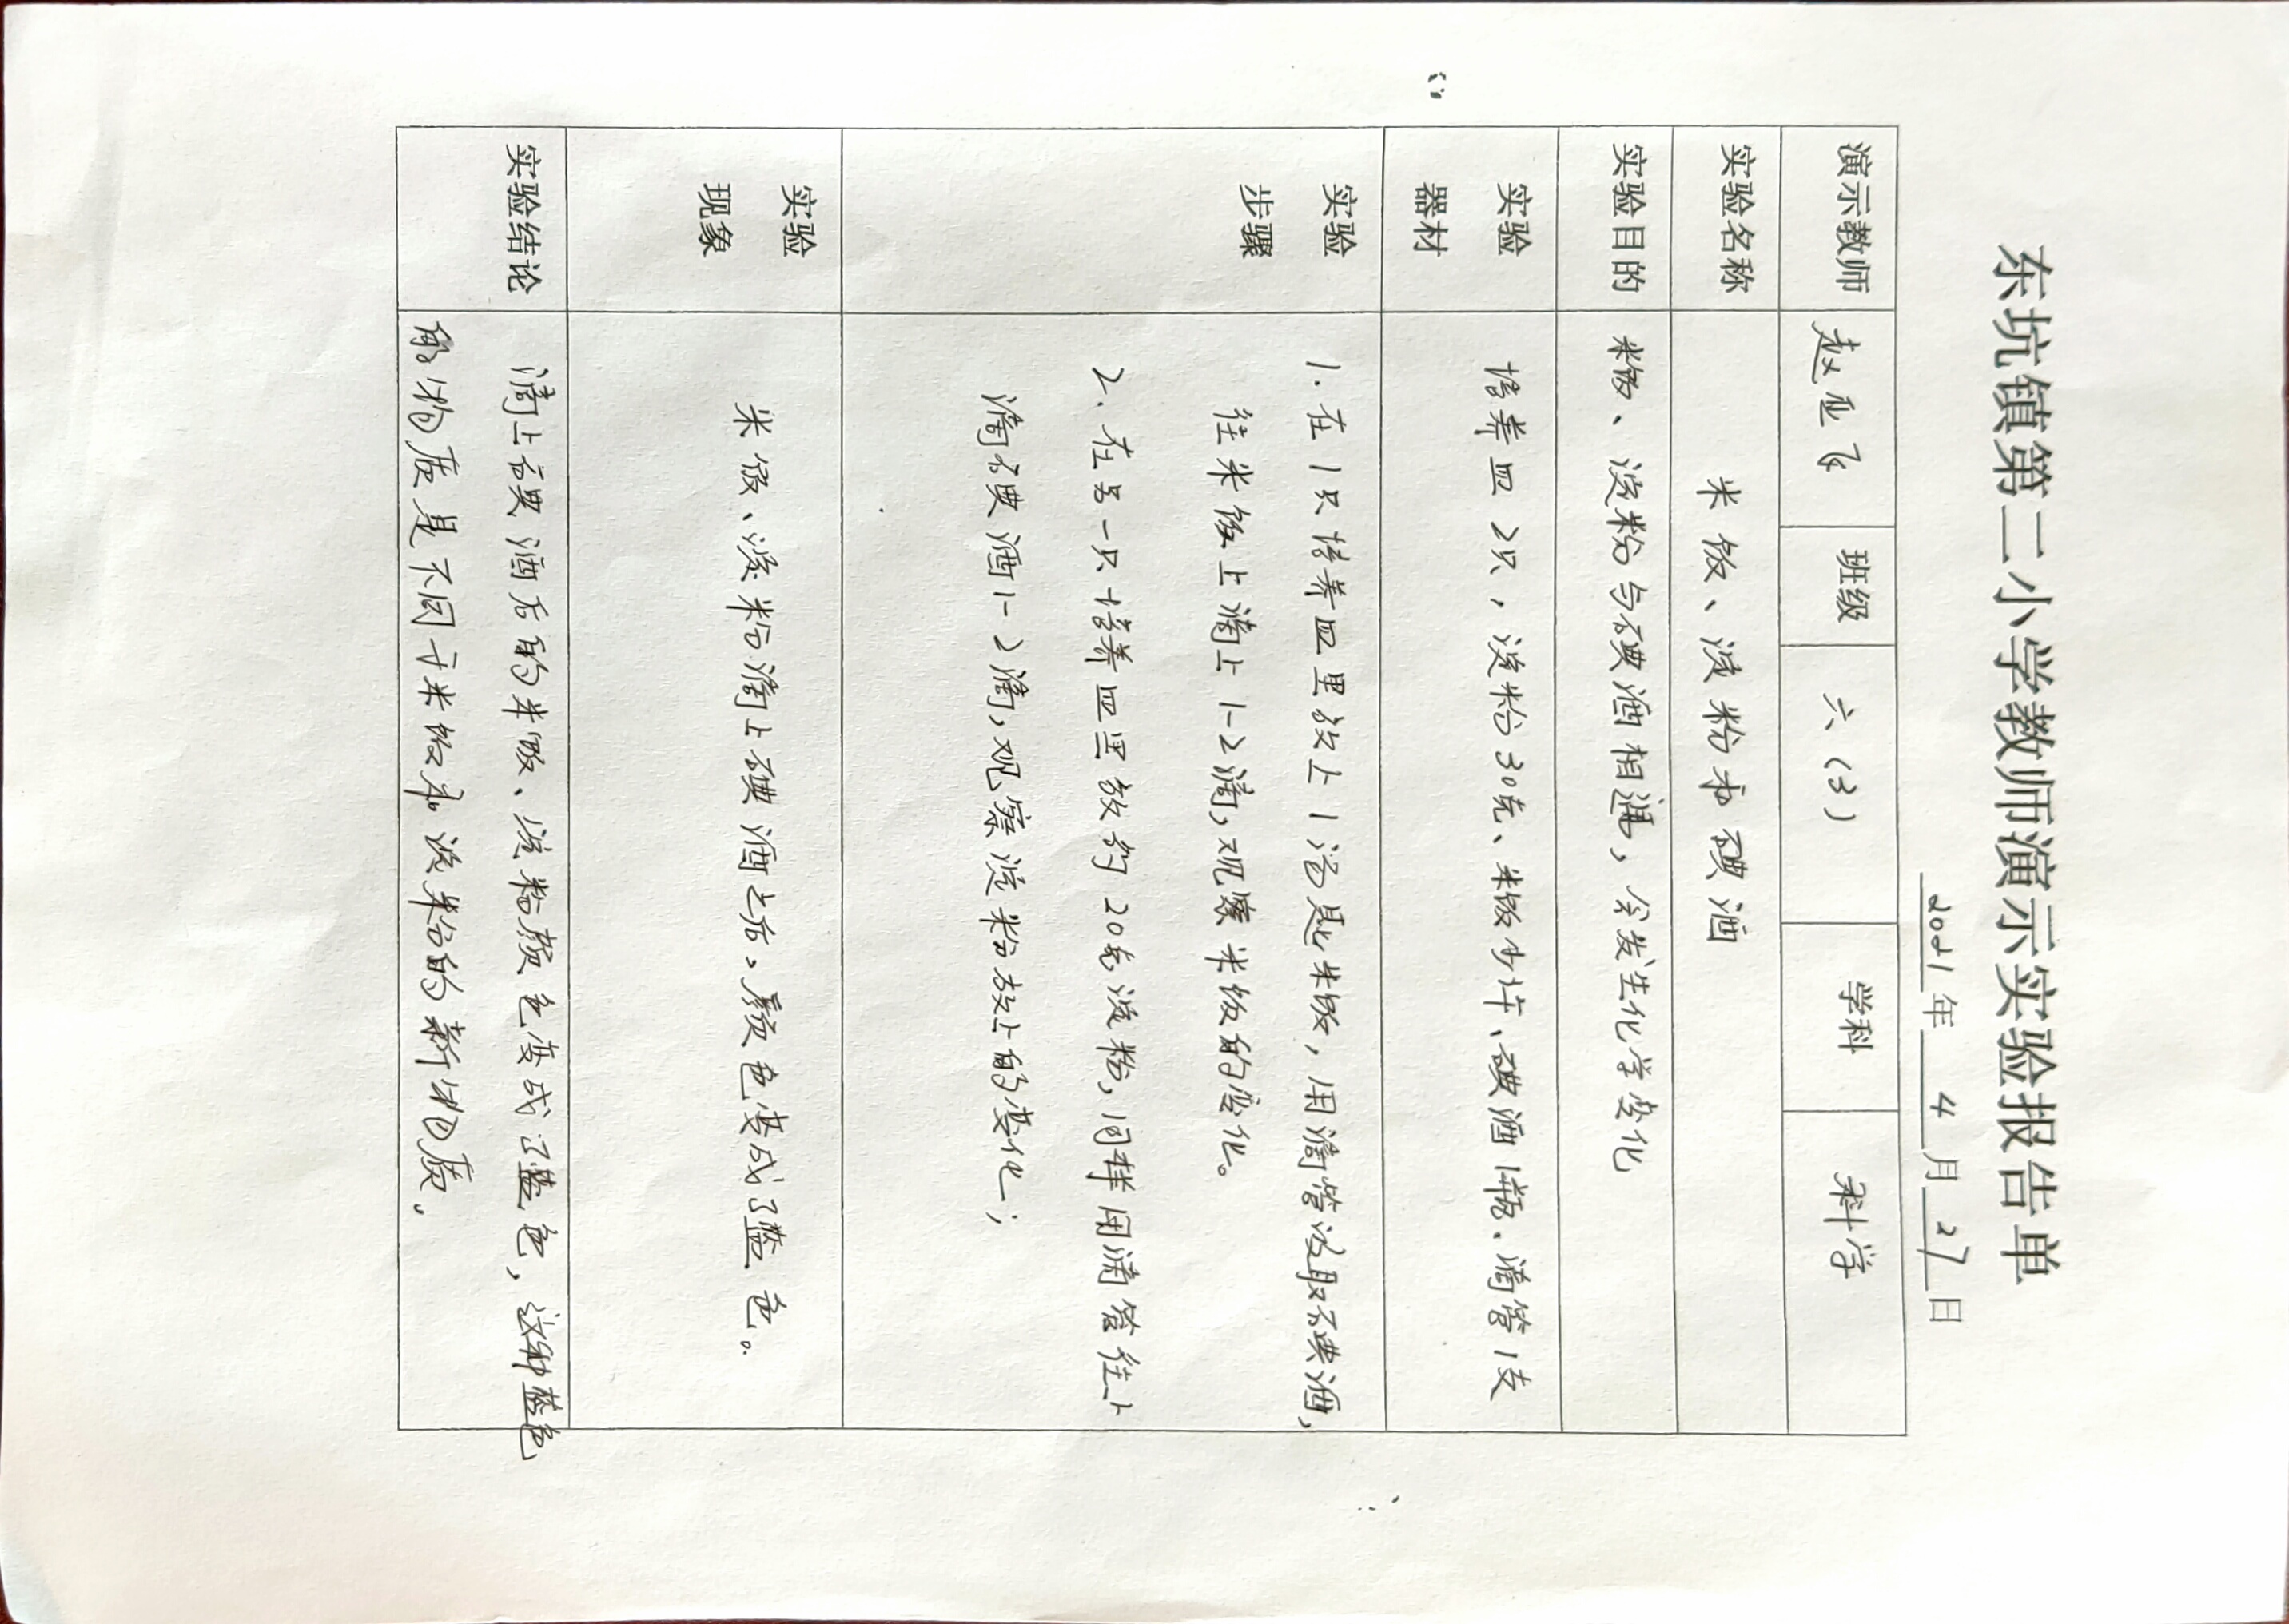 东坑镇第二小学教师演示实验报告单
2021年4月27日
演示教师 赵亚飞 班级 六（3） 学科 科学
实验名称 米饭、淀粉和碘酒
实验目的 米饭、淀粉与碘酒相遇，会发生化学变化
实验器材 培养皿2只，淀粉30克、米饭少许、碘酒1瓶、滴管1支
实验步骤 1.在1只培养皿里放上1汤匙米饭，用滴管汲取碘酒，
往米饭上滴上1-2滴，观察米饭的变化。
2.在另一只培养皿里放约20克淀粉，同样用滴管往上
滴碘酒1-2滴，观察淀粉放上的变化；
实验现象 米饭、淀粉滴上碘酒之后，颜色变成了蓝色。
实验结论 滴上碘酒后的米饭、淀粉颜色变成了蓝色，这种蓝色
的物质是不同于米饭和淀粉的新物质。